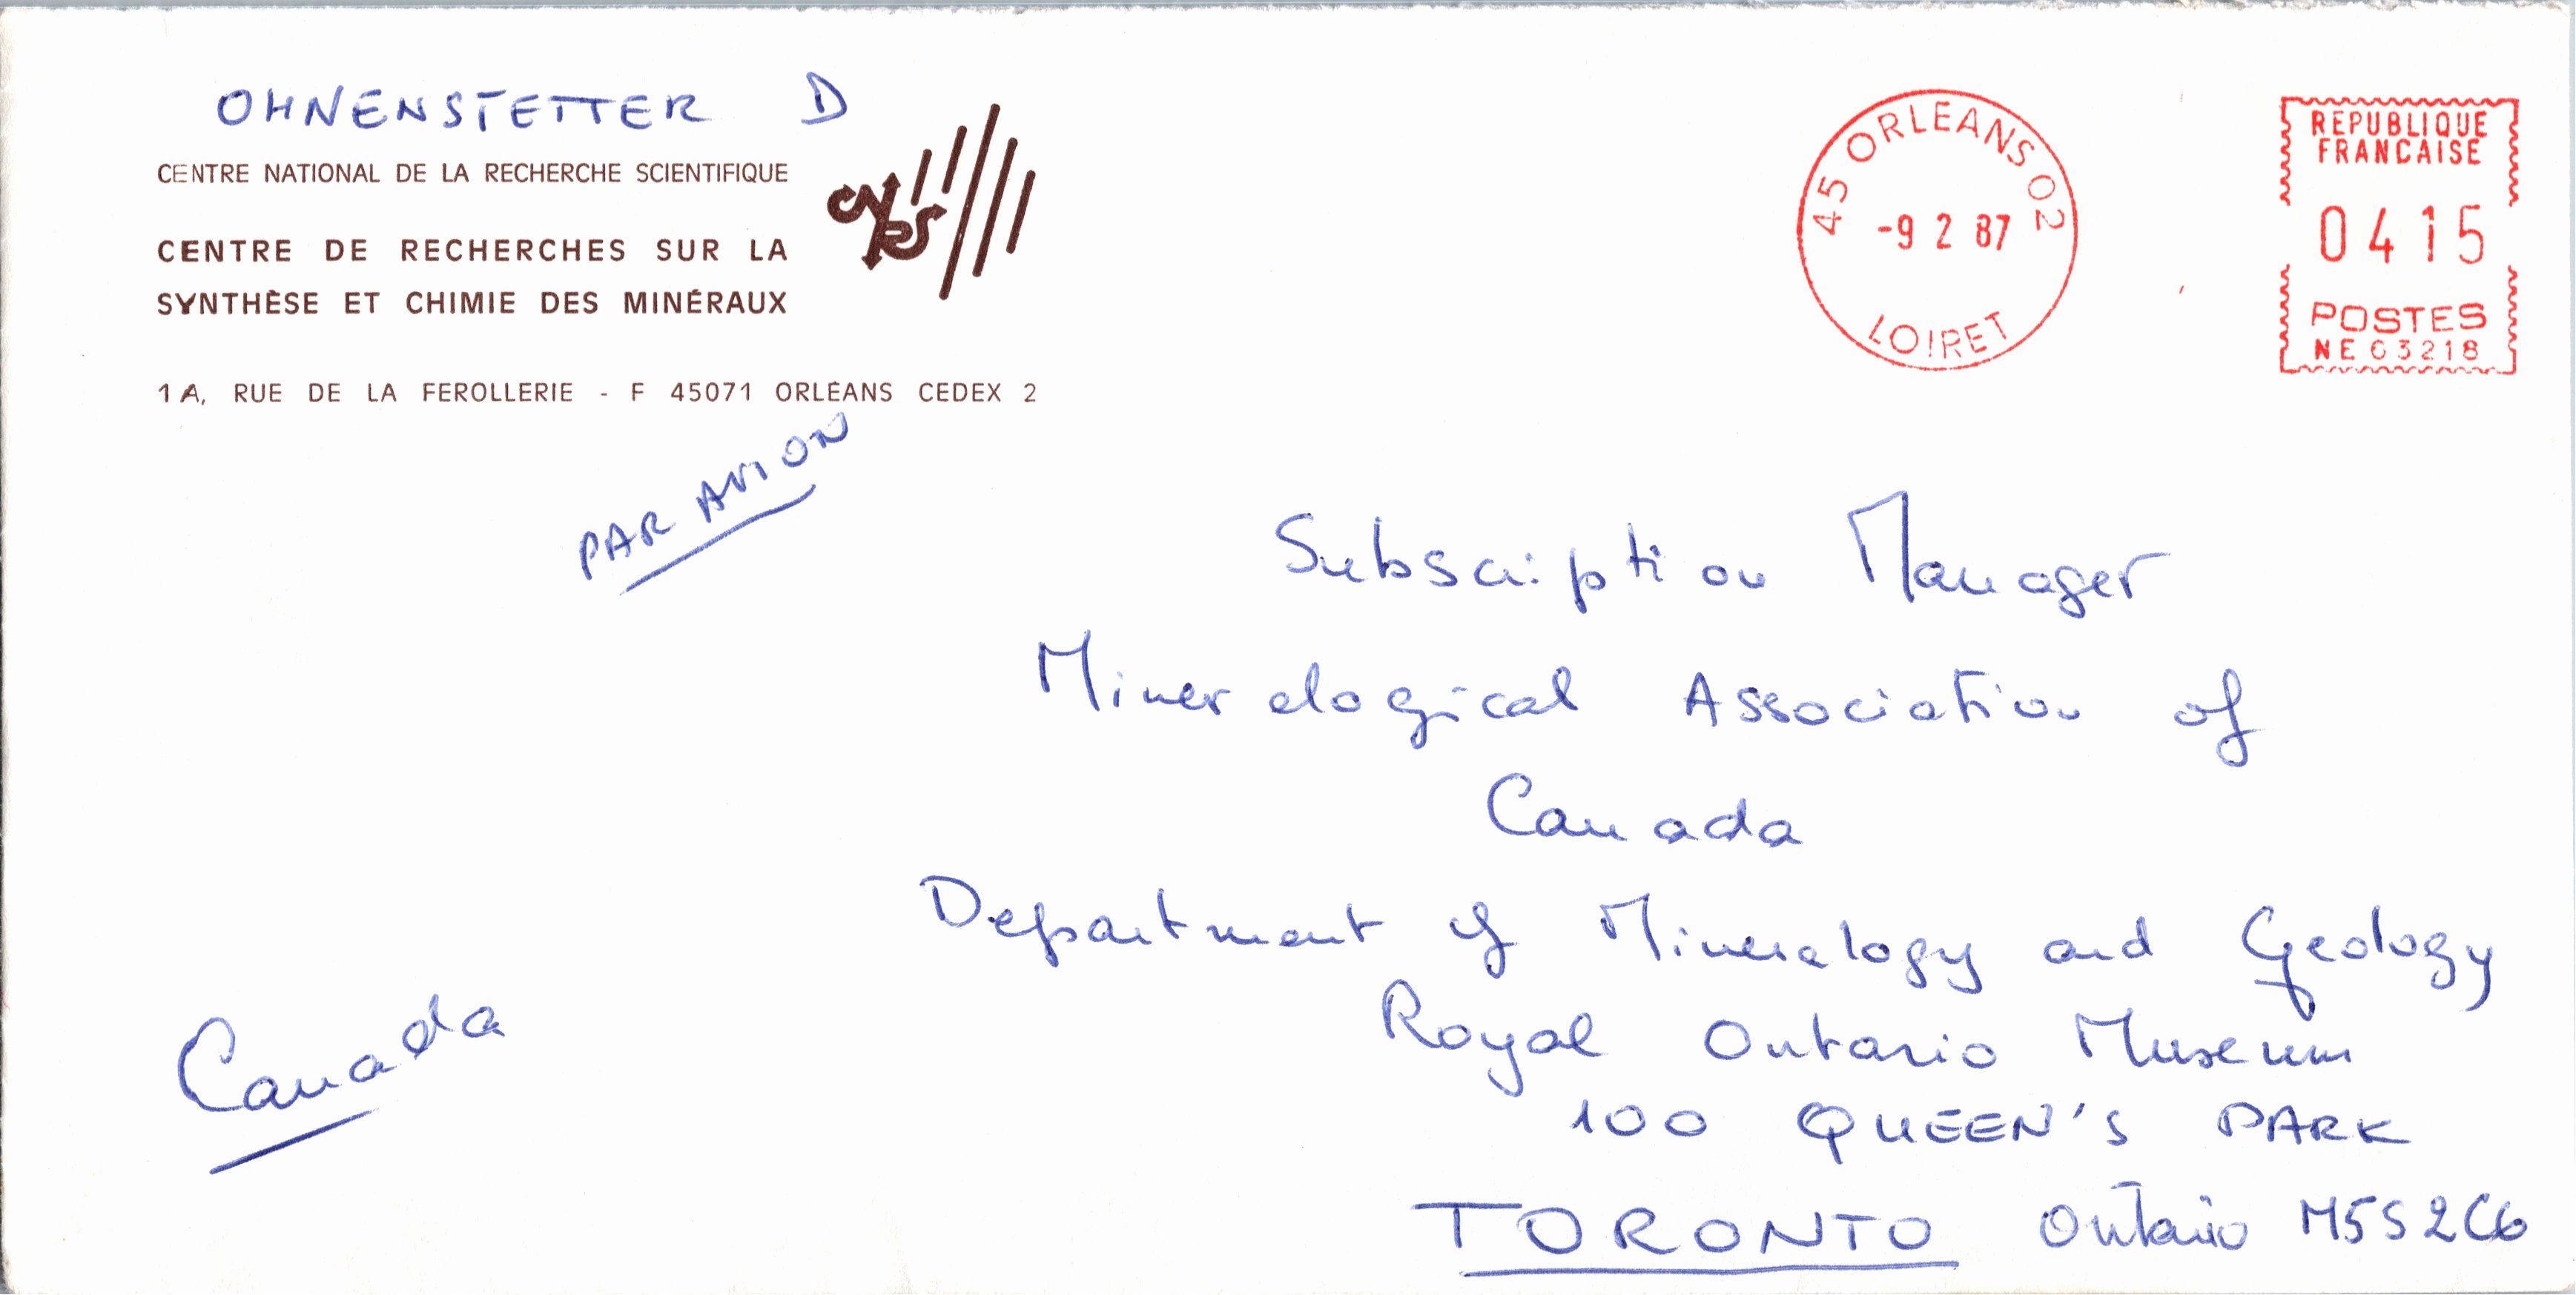 OHNENSTETTER D
CENTRE NATIONAL DE LA RECHERCHE SCIENTIFIQUE
cnrs
CENTRE DE RECHERCHES SUR LA
SYNTHÈSE ET CHIMIE DES MINÉRAUX
1A, RUE DE LA FEROLLERIE - F 45071 ORLÉANS CEDEX 2
45 ORLEANS 02
-9 2 87
LOIRET
REPUBLIQUE
FRANCAISE
0415
POSTES
NE 63218
PAR AVION
Subscription Manager
Mineralogical Association of
Canada
Department of Mineralogy and Geology
Royal Ontario Museum
100 QUEEN'S PARK
TORONTO Ontario M5S2C6
Canada